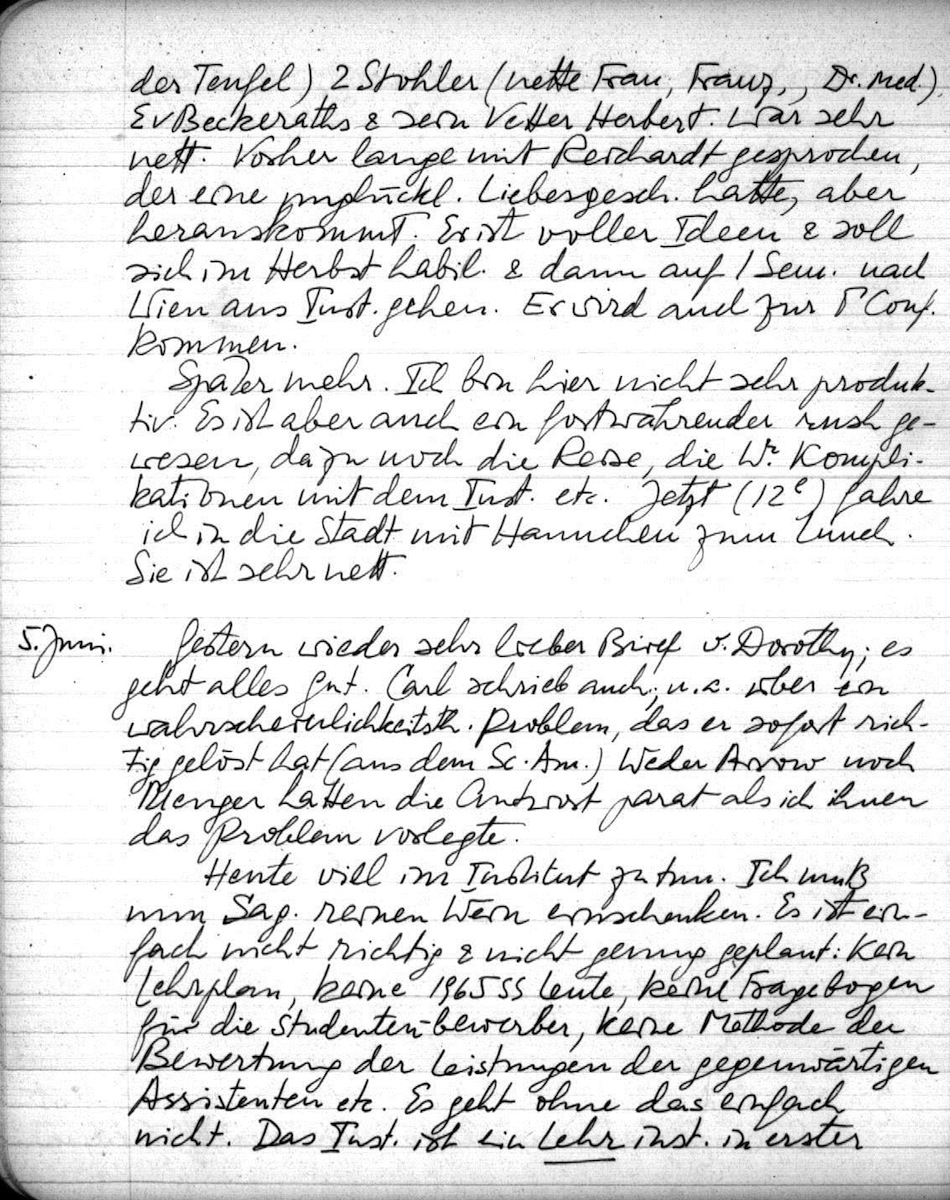 der Teufel) 2 Stohler (nette Frau, Franz., Dr. med.).
E v Beckeraths & sein Vetter Herbert. War sehr
nett. Vorher lange mit Reichardt gesprochen,
der eine unglückl. Liebesgesch. hatte, aber
herauskommt. Er ist voller Ideen & soll
sich im Herbst habil. & dann auf 1 Sem. nach
Wien ans Inst. gehen. Er wird auch zur Γ Conf.
kommen.
Später mehr. Ich bin hier nicht sehr produk-
tiv. Es ist aber auch ein fortwährender rush ge-
wesen, dazu noch die Reise, die Wr. Kompli-
kationen mit dem Inst. etc. Jetzt (12e) fahre
ich in die Stadt mit Hannchen zum Lunch.
Sie ist sehr nett.
5. Juni. Gestern wieder sehr lieber Brief v. Dorothy; es
geht alles gut. Carl schrieb auch; u.a. über ein
wahrscheinlichkeitsth. Problem, das er sofort rich-
tig gelöst hat (aus dem Sc. Am.) Weder Arrow noch
Menger hatten die Antwort parat als ich ihnen
das Problem vorlegte.
Heute viel im Institut zu tun. Ich muß
nun Sag. reinen Wein einschenken. Es ist ein-
fach nicht richtig & nicht genug geplant: Kein
Lehrplan, keine 1965 SS Leute, keine Fragebogen
für die Studenten-bewerber, keine Methode der
Bewertung der Leistungen der gegenwärtigen
Assistenten etc. Es geht ohne das einfach
nicht. Das Inst. ist ein Lehrinst. in erster